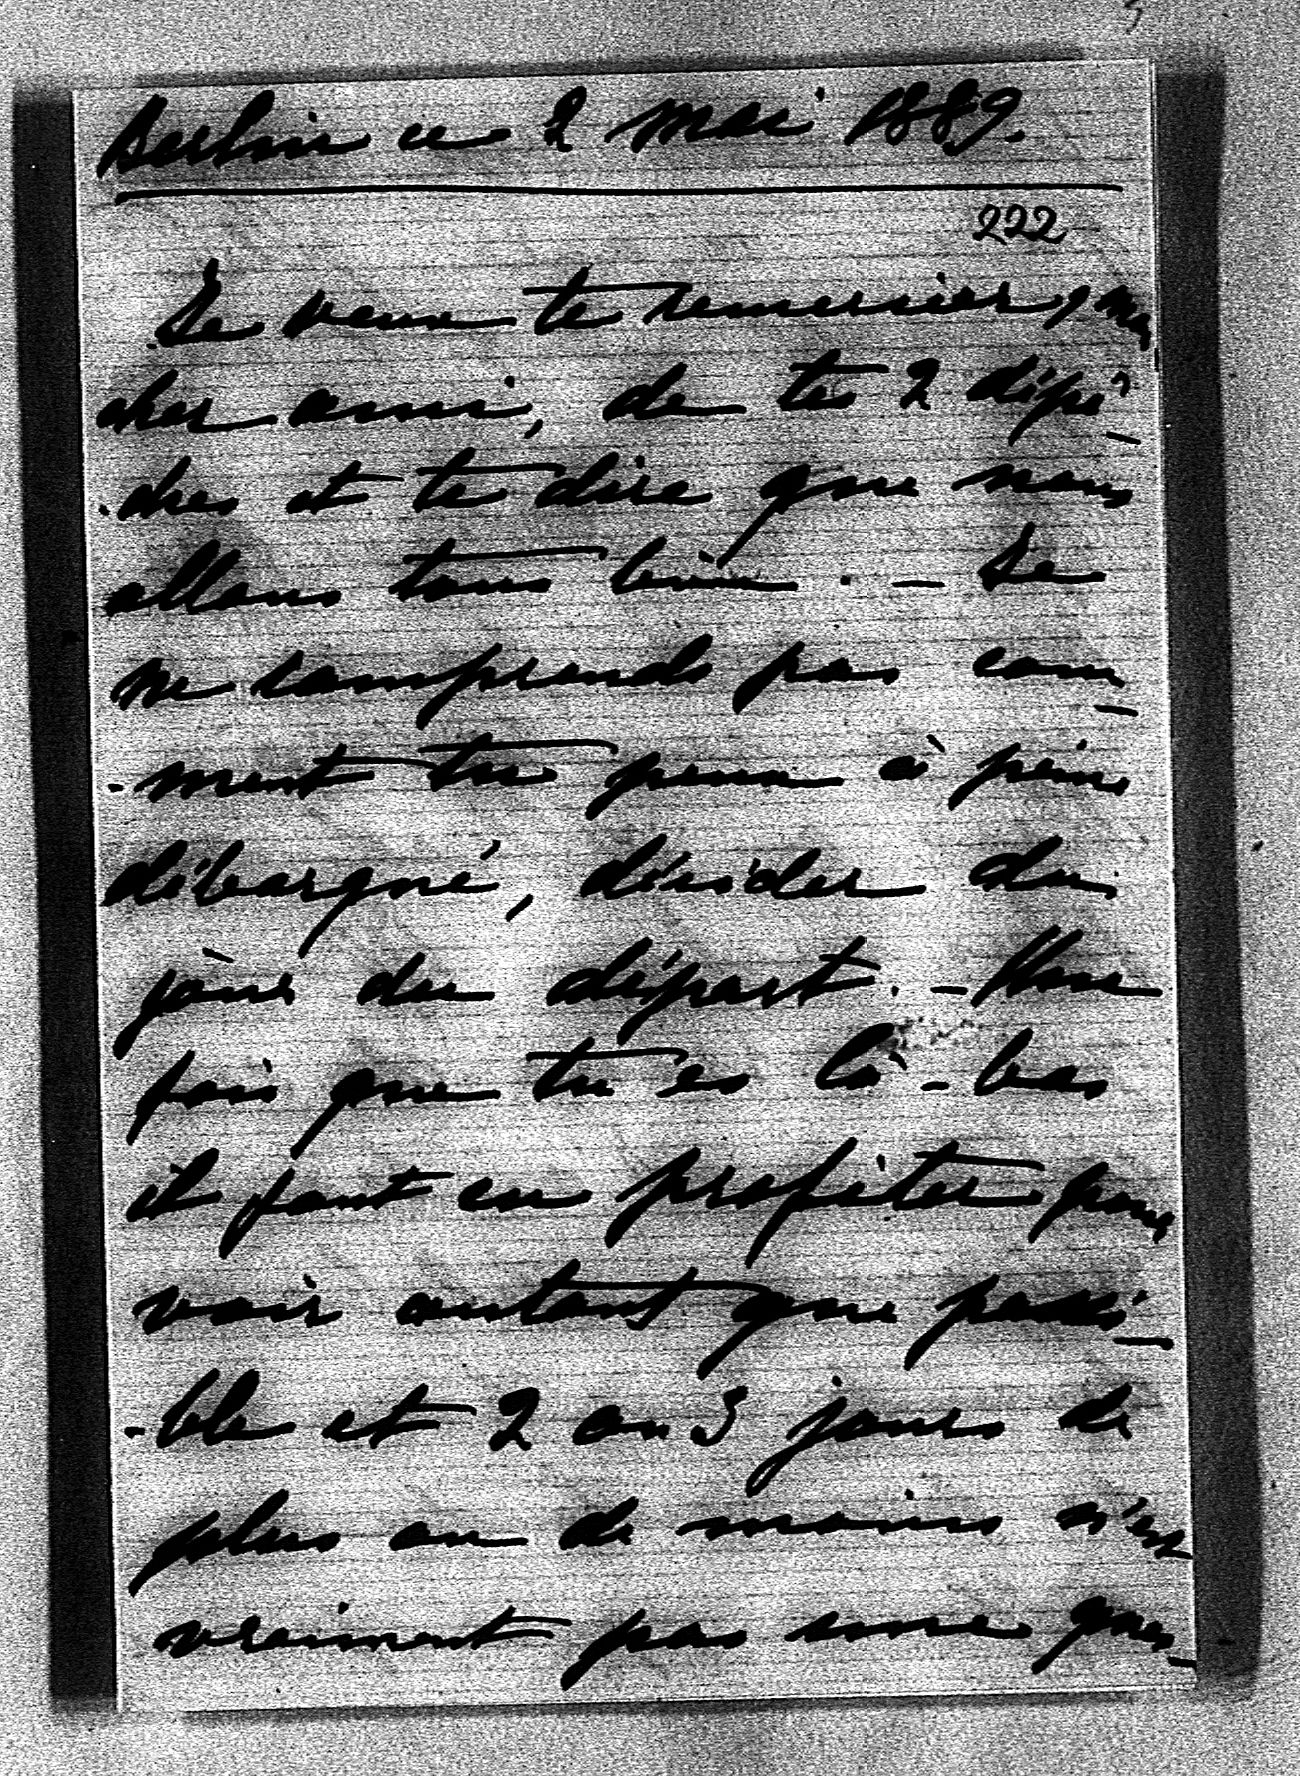 Berlin ce 2 mai 1889.
222
Je veux te remercier, mon
cher ami, de tes 2 dépê-
-ches et te dire que nous
allons tous bien. - Je
ne comprends pas com-
-ment tu peux à peine
débarqué, décider du
jour du départ. - Une
fois que tu es là-bas
il faut en profiter pour
voir autant que possi-
-ble et 2 ou 3 jours de
plus ou de moins n'est
vraiment pas une ques-